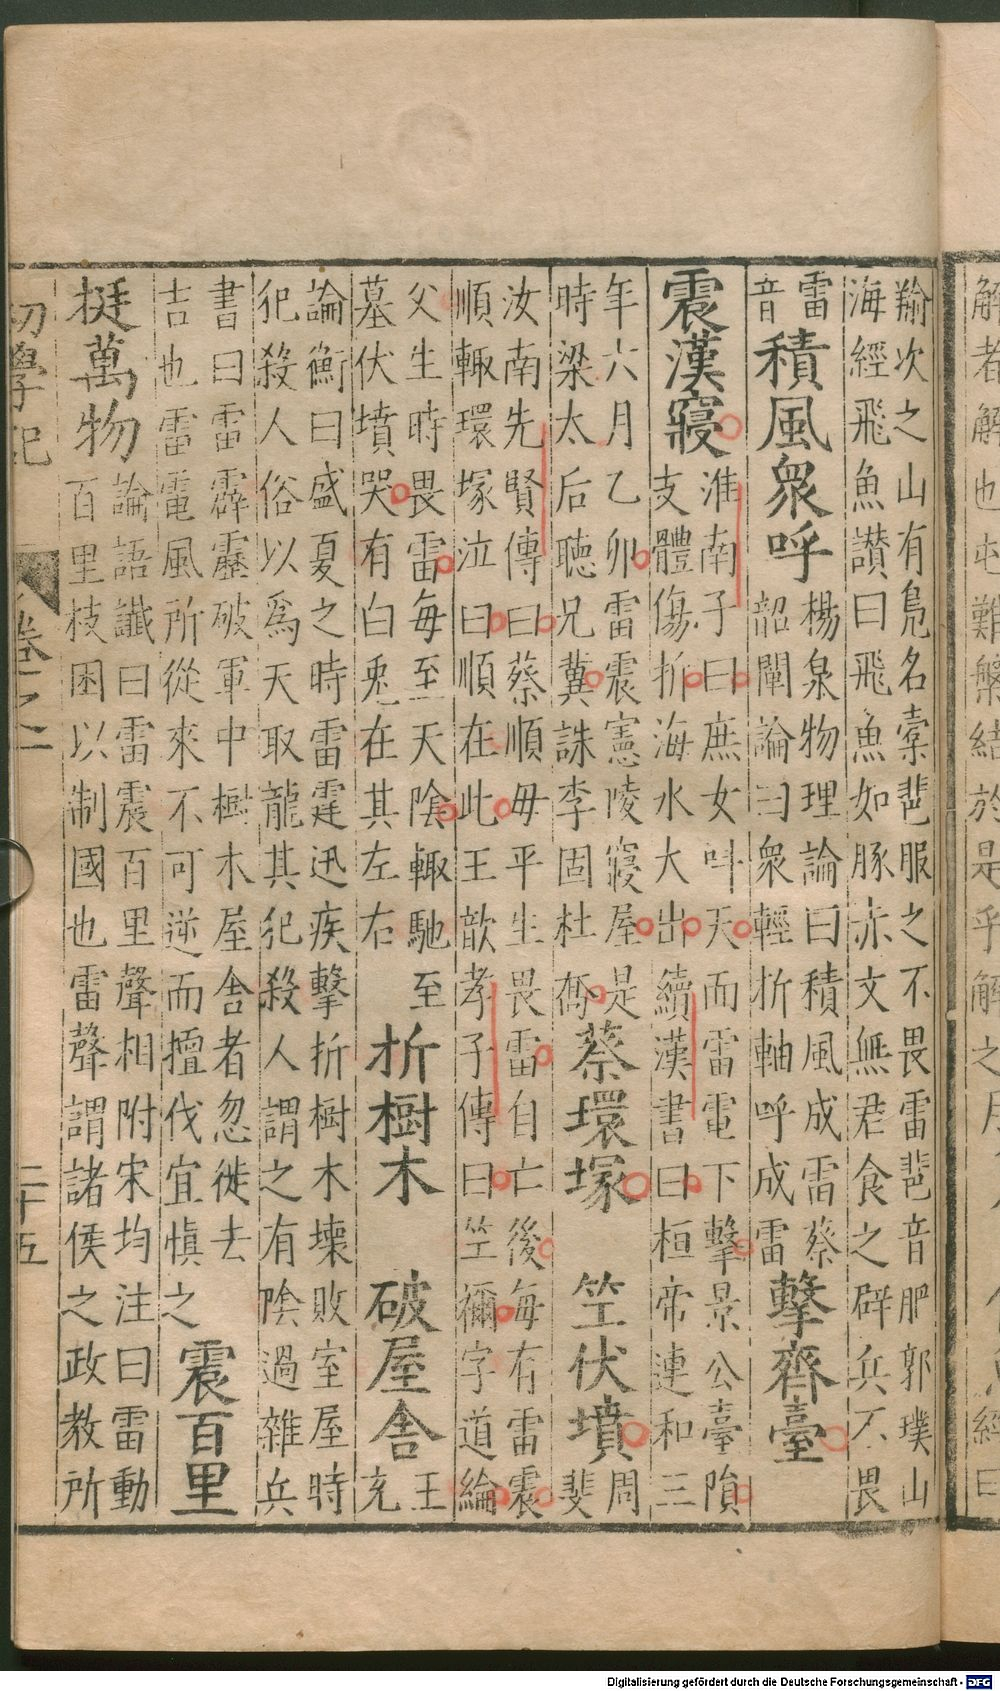 解者解也屯難槃結於是乎解之
羭次之山有鳬名橐𩇯服之不畏雷𩇯音肥郭璞山
海經飛魚讚曰飛魚如豚赤文無君食之辟兵不畏
雷
音
積風衆呼
楊泉物理論曰積風成雷蔡
韶闡論曰衆輕折軸呼成雷
擊齊臺
震漢寢
淮南子曰庶女叫天而雷電下擊景公臺隕
支體傷折海水大出續漢書曰桓帝連和三
年六月乙卯雷震憲陵寢屋是
時梁太后聽兄冀誅李固杜喬
蔡環塚
竺伏墳
周
斐
汝南先賢傳曰蔡順母平生畏雷自亡後每有雷震
順輙環塚泣曰順在此王歆孝子傳曰竺禰字道綸
父生時畏雷每至天陰輙馳至
墓伏墳哭有白兎在其左右
折樹木
破屋舍
王
充
論衡曰盛夏之時雷霆迅疾擊折樹木壞敗室屋時
犯殺人俗以爲天取龍其犯殺人謂之有陰過雜兵
書曰雷霹靂破軍中樹木屋舍者忽徙去
吉也雷電風所從來不可逆而擅伐宜愼之
震百里
挺萬物
論語讖曰雷震百里聲相附宋均注曰雷動
百里枝困以制國也雷聲謂諸侯之政教所
初學記 卷之一 二十五
Digitalisierung gefördert durch die Deutsche Forschungsgemeinschaft - DFG